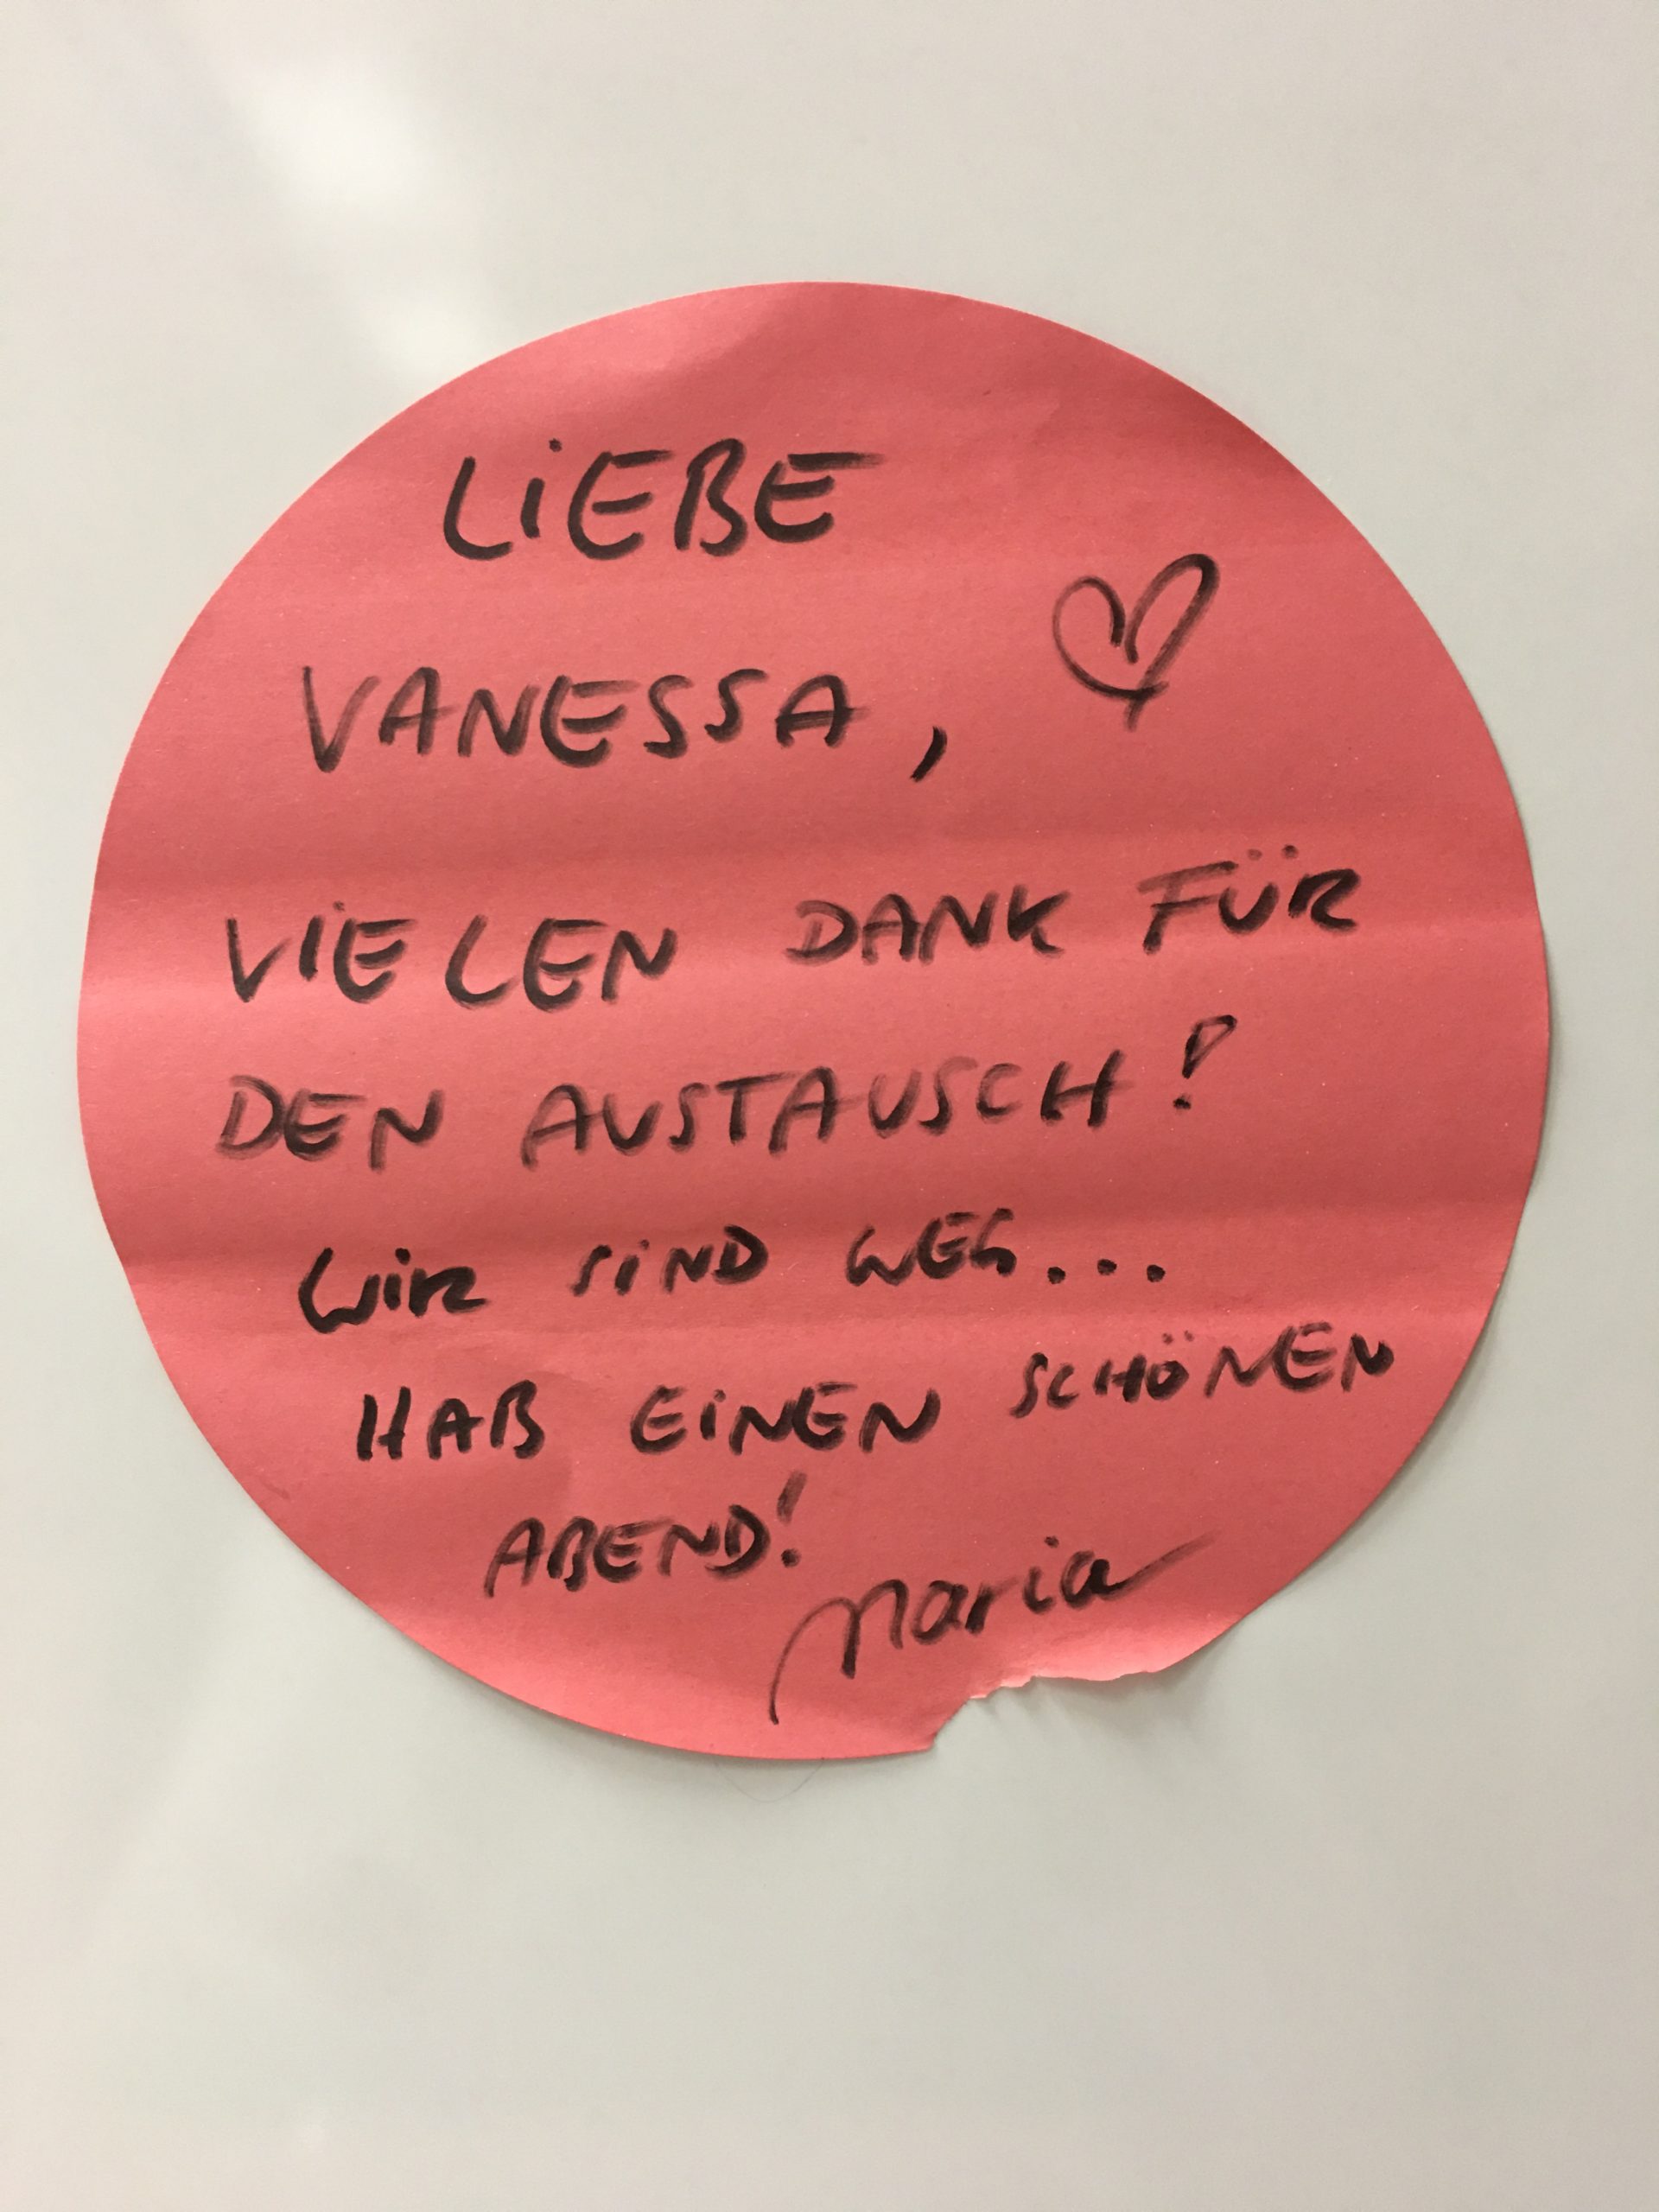 LiEBE
VANESSA,
VIELEN DANK FÜR
DEN AUSTAUSCH!
WiR SiND WEG...
HAB EiNEN SCHÖNEN
ABEND!
Maria